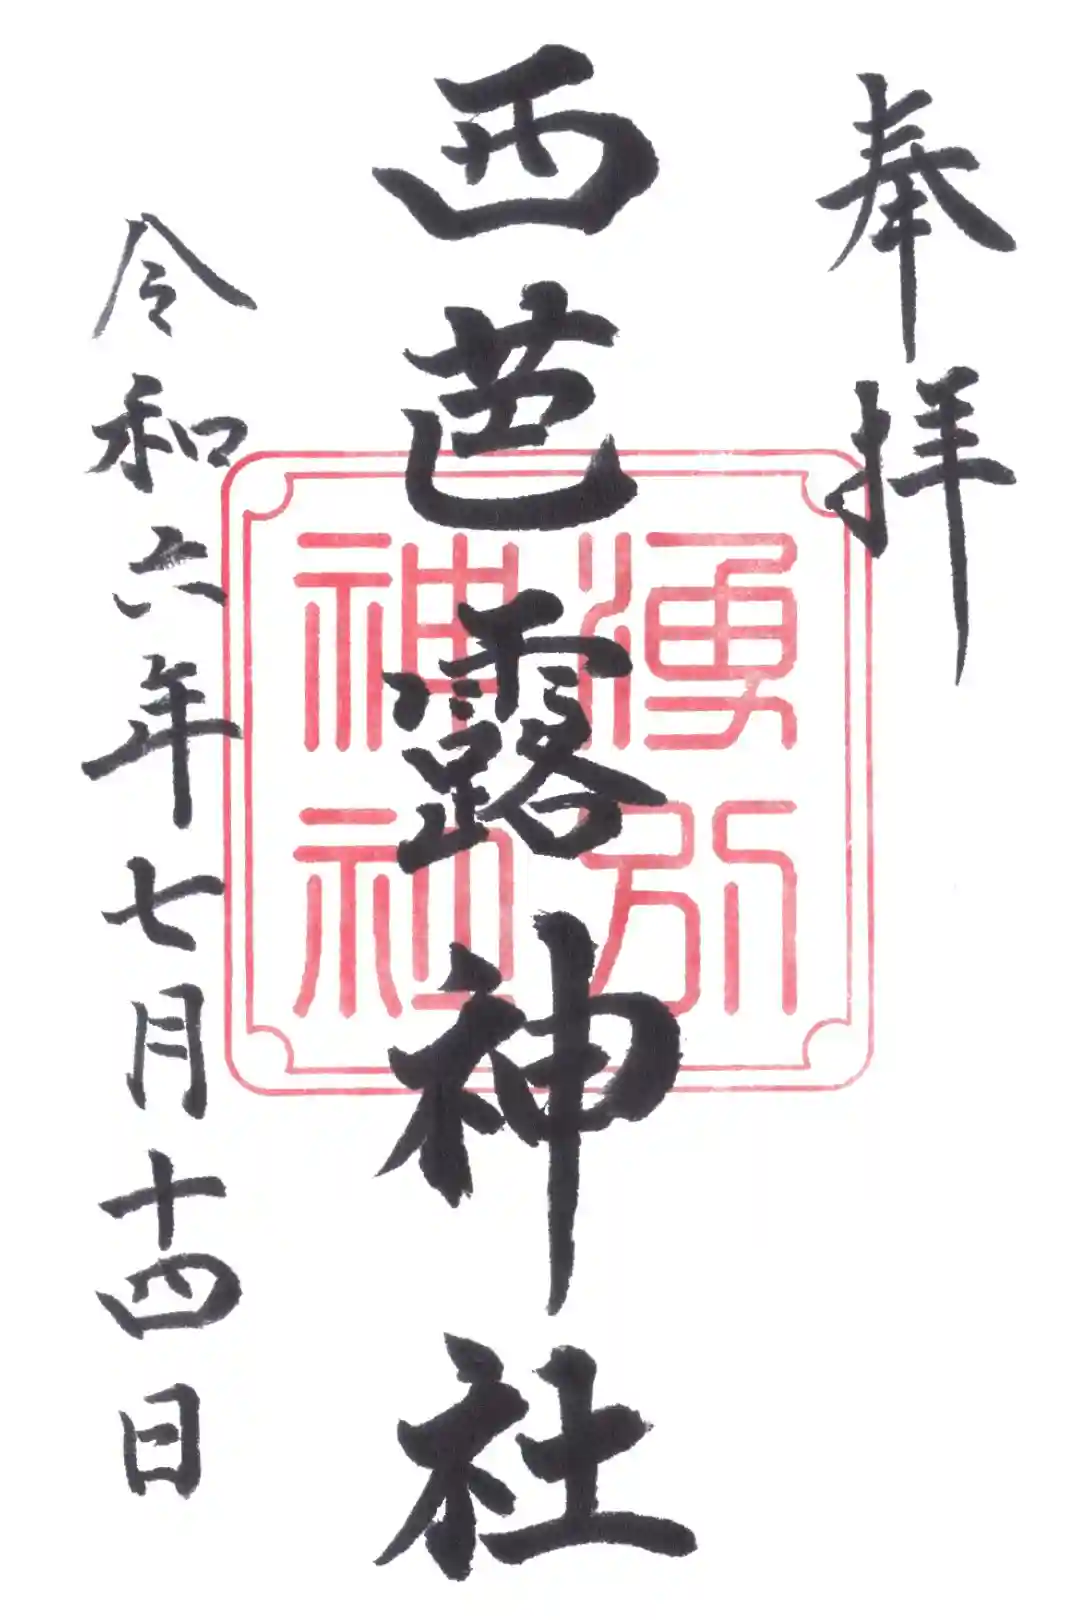 奉拝
西芭露神社
湧別
神社
令和六年七月十四日